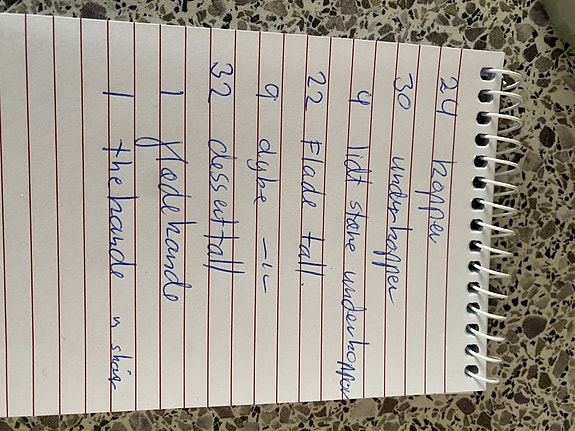 24 kopper
30 underkopper
4 lidt støre underkopper
22 Flade tall.
9 dybe -"-
32 desserttall
1 flødekande
1 thekande